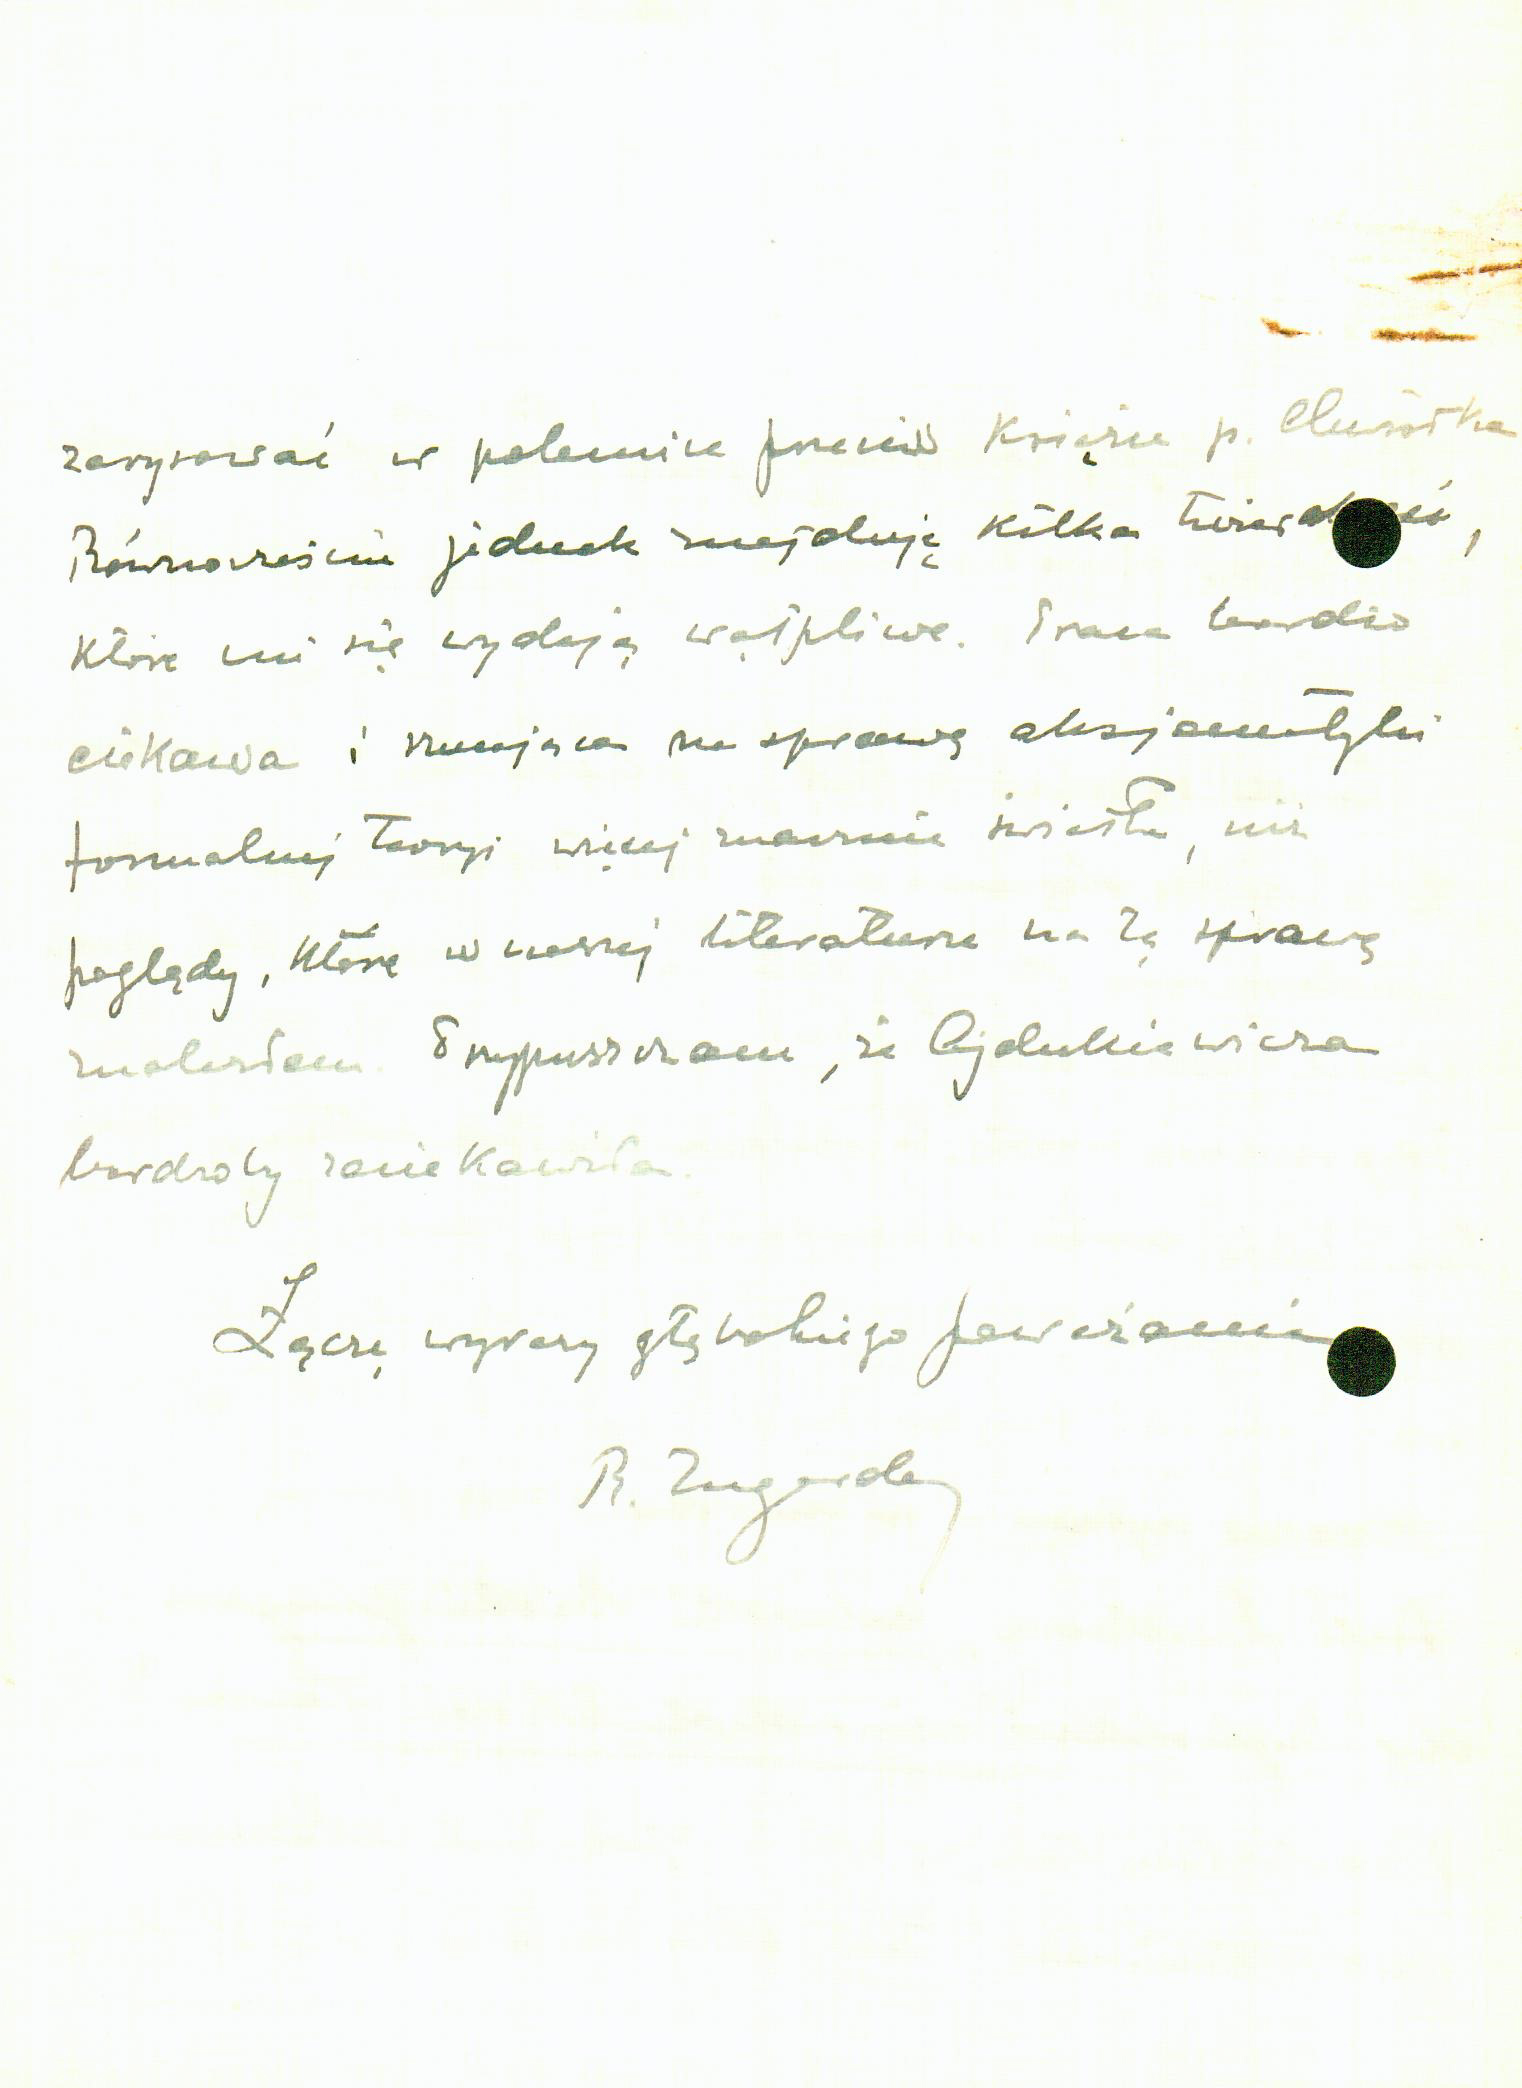 zarysować w polemice przeciw Księżce p. Chwistka
Równocześnie jednak znajduję kilka twierdzeń,
które mi się wydają wątpliwe. Praca bardzo
ciekawa i rzucająca na sprawę aksjomatyki
formalnej teorji więcej znacznie światła, niż
poglądy, które w naszej literaturze na tę sprawę
znalazłem. Przypuszczam, że Ajdukiewicza
bardzoby zaciekawiła.
Łączę wyrazy głębokiego poważania
R. Ingarden